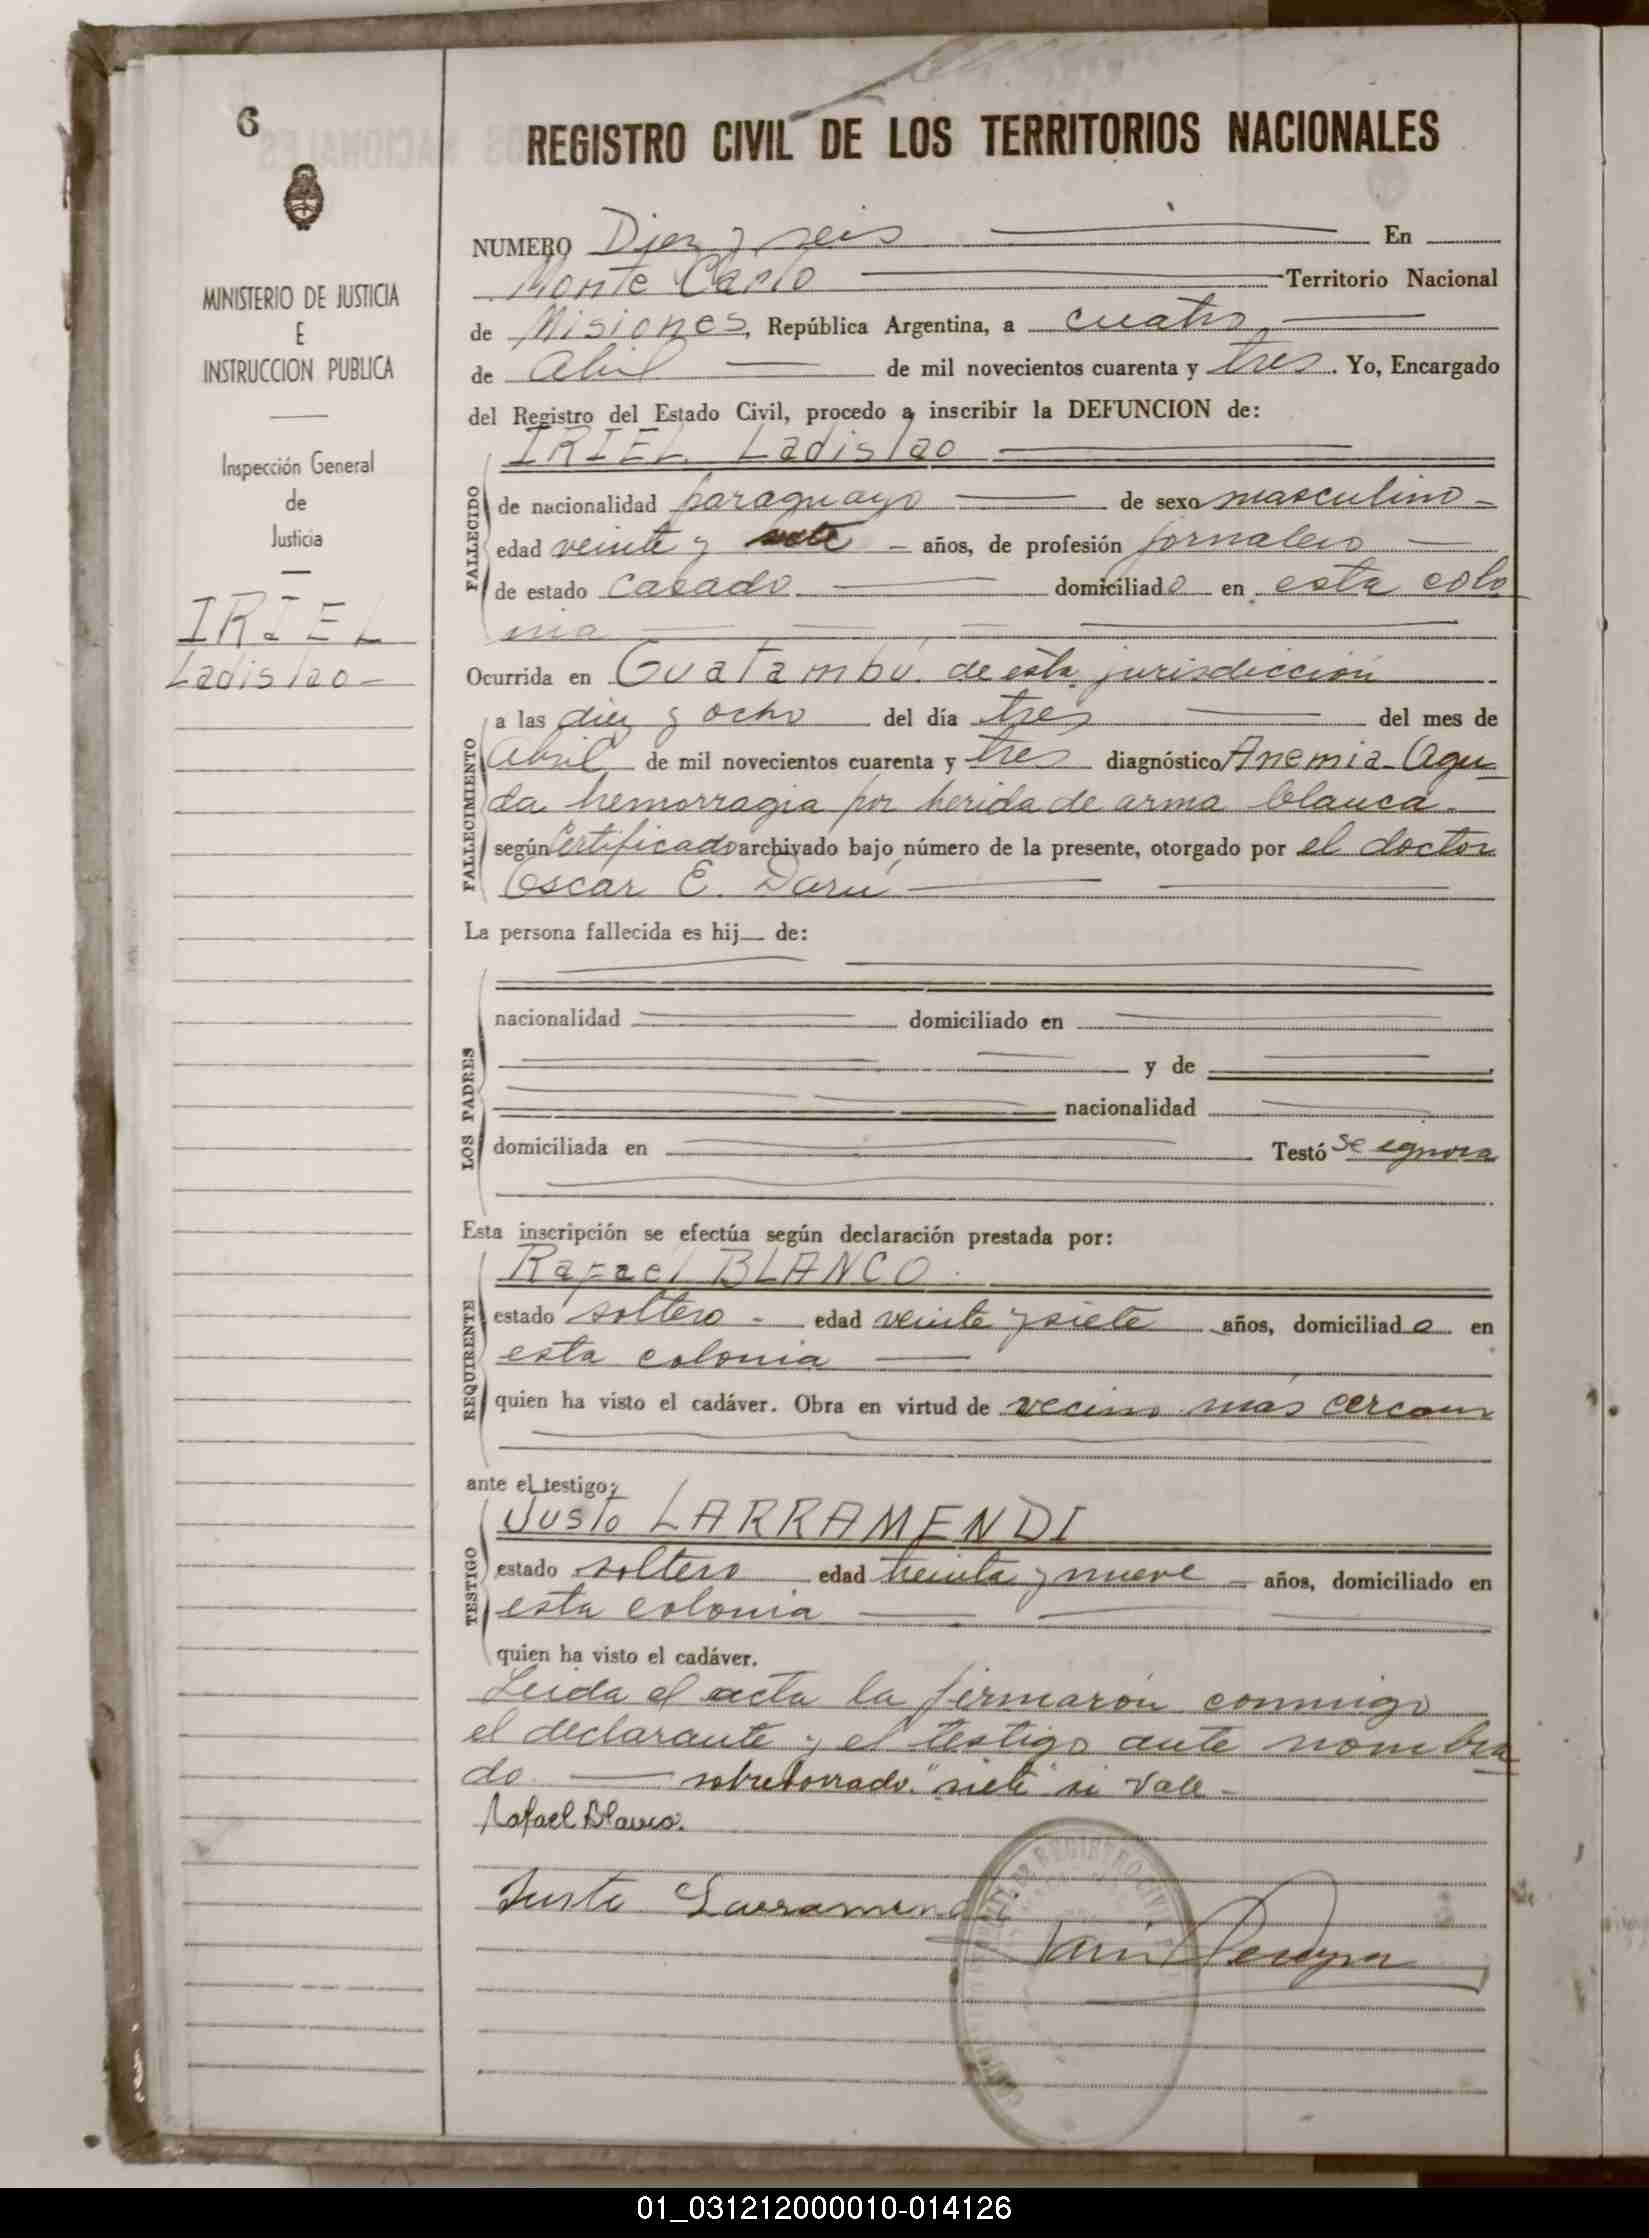 6
REGISTRO CIVIL DE LOS TERRITORIOS NACIONALES
MINISTERIO DE JUSTICIA
E
INSTRUCCION PUBLICA
Inspección General
de
Justicia
IRIEL
Ladislao
NUMERO Diez y seis En
Monte Carlo Territorio Nacional
de Misiones, República Argentina, a cuatro
de Abril de mil novecientos cuarenta y tres. Yo, Encargado
del Registro del Estado Civil, procedo a inscribir la DEFUNCION de:
IRIEL Ladislao
FALLECIDO
de nacionalidad paraguayo de sexo masculino
edad veinte y siete años, de profesión jornalero
de estado casado domiciliado en esta colo
nia
Ocurrida en Guatambú de esta jurisdicción
FALLECIMIENTO
a las diez y ocho del día tres del mes de
Abril de mil novecientos cuarenta y tres diagnóstico Anemia Agu
da hemorragia por herida de arma blanca
según Certificado archivado bajo número de la presente, otorgado por el doctor
Oscar E. Darú
La persona fallecida es hij de:
LOS PADRES
nacionalidad domiciliado en
y de
nacionalidad
domiciliada en Testó se ignora
Esta inscripción se efectúa según declaración prestada por:
REQUIRENTE
Rafael BLANCO
estado soltero edad veinte y siete años, domiciliado en
esta colonia
quien ha visto el cadáver. Obra en virtud de vecino más cercano
ante el testigo:
TESTIGO
Justo LARRAMENDI
estado soltero edad treinta y nueve años, domiciliado en
esta colonia
quien ha visto el cadáver.
Leida el acta la firmarón conmigo
el declarante y el testigo ante nombra
do. sobreborrado "siete" si vale
Rafael Blanco.
Justo Larramendi
REGISTRO CIVIL
01_031212000010-014126